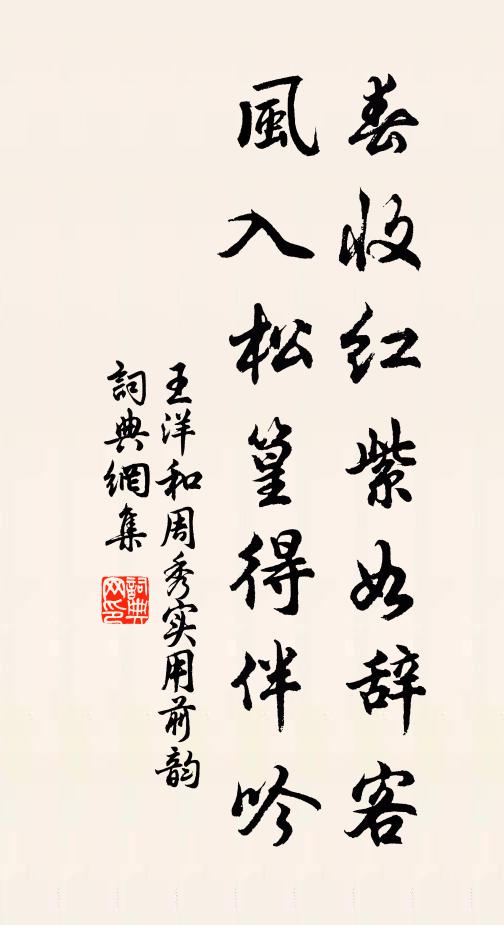 春收红紫如辞客
風入松篁得伴吟
王洋和周秀实用前韵
詞典網集
詞典網印